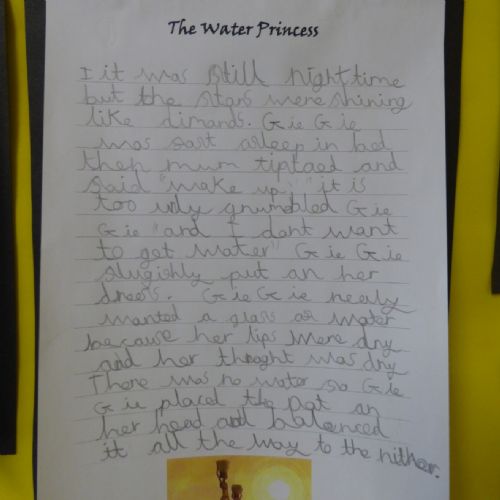 The Water Princess
I it was still night time
but the stars were shining
like dimands. Gie Gie
was fast asleep in bed
then mum tiptoed and
said "wake up" "it is
too urly grumbled Gie
Gie "and I dont want
to get water" Gie Gie
slugishly put on her
dress. Gie Gie really
wanted a glass of water
because her lips were dry
and her throght was dry
There was no water so Gie
Gie placed the pot on
her head and balenced
it all the way to the